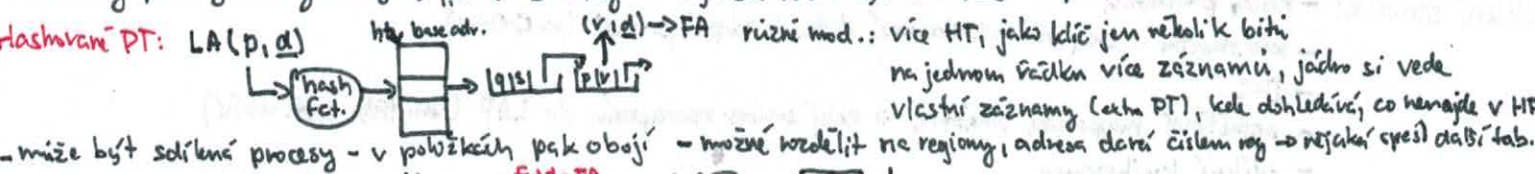 Hashované PT: LA(p,d) htb base adr. (v,d) → FA různé mod.: více HT, jako klíč jen několik bitů
hash fct. |q|s| |p|v| na jednom řádku více záznamů, jádro si vede
vlastní záznamy (extra PT), kde dohledává, co nenajde v HP
- může být sdílená procesy - v položkách pak obojí - možné rozdělit na regiony, adresa daná číslem reg → nějaká spešl další tab.